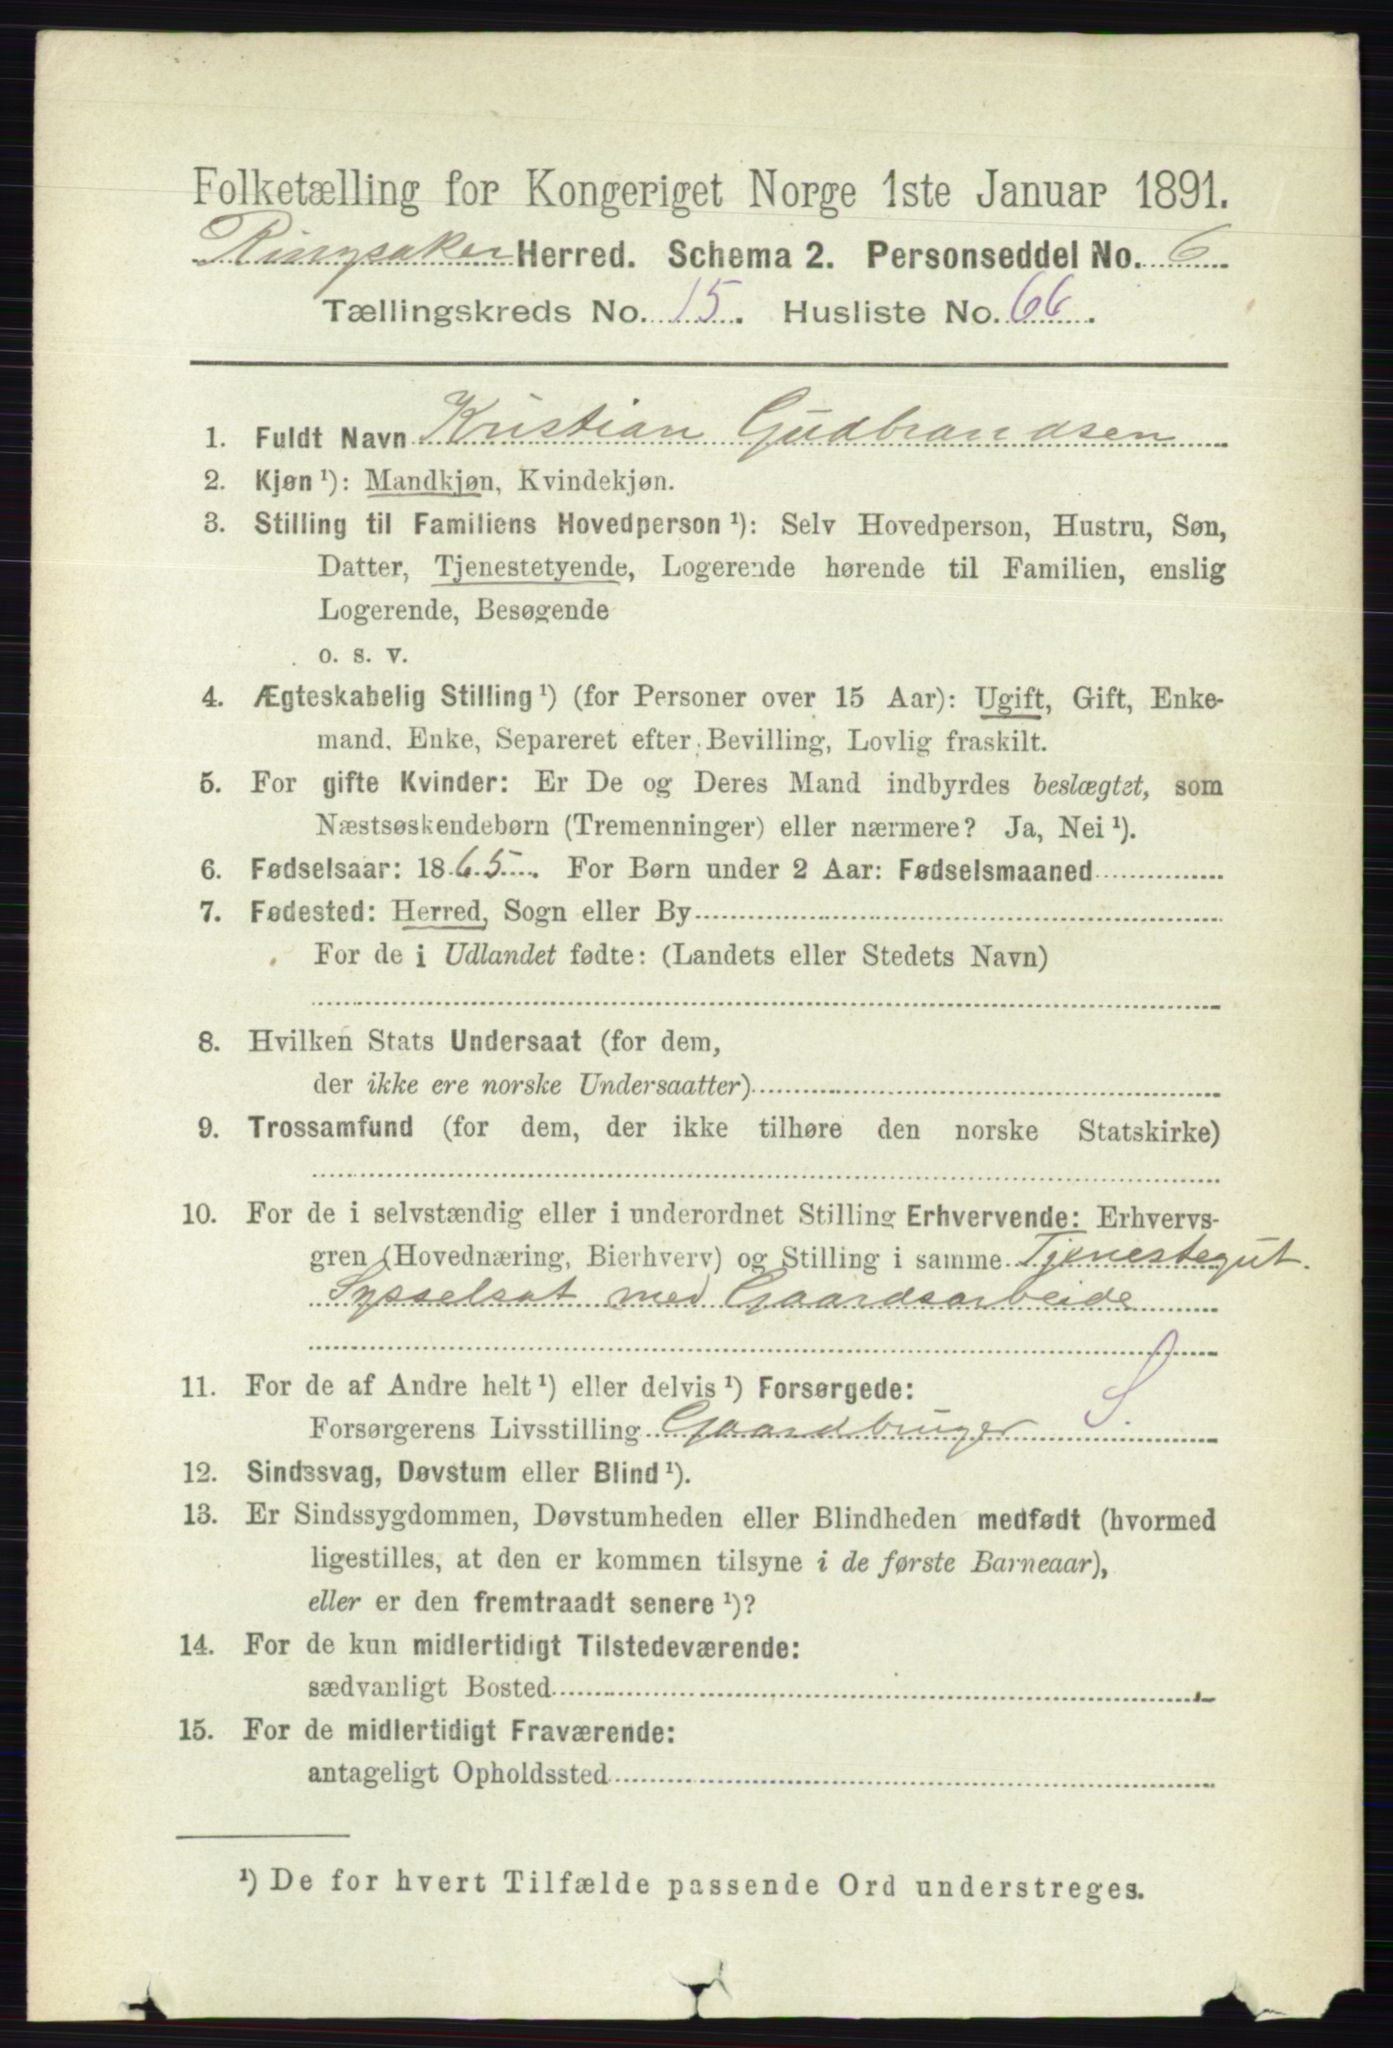 Folketælling for Kongeriget Norge 1ste Januar 1891.
Ringsaker Herred. Schema 2. Personseddel No. 6
Tællingskreds No. 15. Husliste No. 66.
1. Fuldt Navn Kristian Gudbrandsen
2. Kjøn ¹): Mandkjøn, Kvindekjøn.
3. Stilling til Familiens Hovedperson ¹): Selv Hovedperson, Hustru, Søn,
Datter, Tjenestetyende, Logerende hørende til Familien, enslig
Logerende, Besøgende
o. s. v.
4. Ægteskabelig Stilling ¹) (for Personer over 15 Aar): Ugift, Gift, Enke-
mand, Enke, Separeret efter Bevilling, Lovlig fraskilt.
5. For gifte Kvinder: Er De og Deres Mand indbyrdes beslægtet, som
Næstsøskendebørn (Tremenninger) eller nærmere? Ja, Nei ¹).
6. Fødselsaar: 1865. For Børn under 2 Aar: Fødselsmaaned
7. Fødested: Herred, Sogn eller By
For de i Udlandet fødte: (Landets eller Stedets Navn)
8. Hvilken Stats Undersaat (for dem,
der ikke ere norske Undersaatter)
9. Trossamfund (for dem, der ikke tilhøre den norske Statskirke)
10. For de i selvstændig eller i underordnet Stilling Erhvervende: Erhvervs-
gren (Hovednæring, Bierhverv) og Stilling i samme Tjenestegut.
Sysselsat med Gaardsarbeide
11. For de af Andre helt ¹) eller delvis ¹) Forsørgede: S.
Forsørgerens Livsstilling Gaardbruger
12. Sindssvag, Døvstum eller Blind ¹).
13. Er Sindssygdommen, Døvstumheden eller Blindheden medfødt (hvormed
ligestilles, at den er kommen tilsyne i de første Barneaar),
eller er den fremtraadt senere ¹)?
14. For de kun midlertidigt Tilstedeværende:
sædvanligt Bosted
15. For de midlertidigt Fraværende:
antageligt Opholdssted
¹) De for hvert Tilfælde passende Ord understreges.